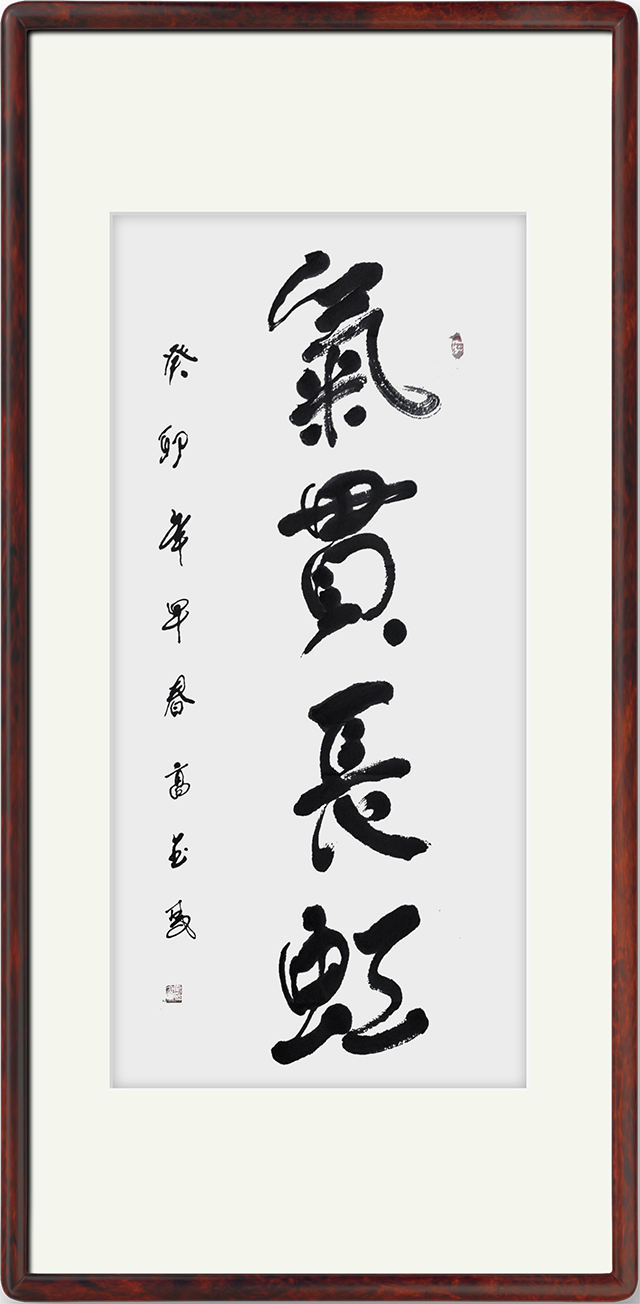 氣貫長虹
癸卯年早春高